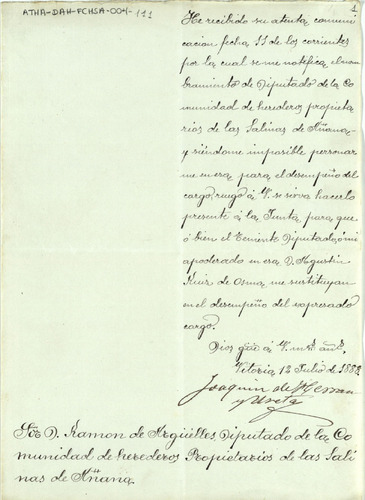 ATHA-DAH-FCHSA-004-111
1
He recibido su atenta comuni
cacion fecha 11 de los corrientes
por la cual se me notifica el nom
bramiento de Diputado de la Co
munidad de herederos propieta
rios de las Salinas de Añana
y siéndome imposible personar
me en esa para el desempeño del
cargo, ruego á V. se sirva hacerlo
presente á la Junta para que
ó bien el Teniente Diputado, ó mi
apoderado en esa D. Agustin
Ruiz de Osma me sustituyan
en el desempeño del expresado
cargo.
Dios gue á V. ms. añs.
Vitoria 12 Julio de 1882
Joaquin de Herran
y Ureta
Sor. D. Ramon de Argüelles, Diputado de la Co
munidad de herederos Propietarios de las Sali
nas de Añana.